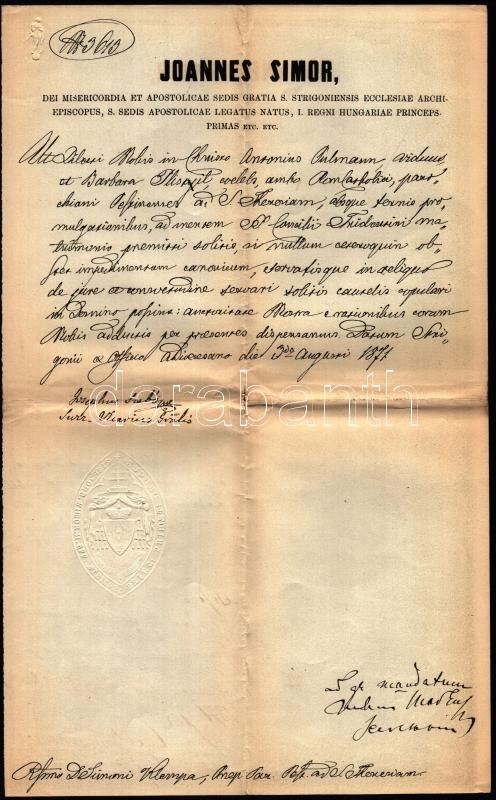 3613
JOANNES SIMOR,
DEI MISERICORDIA ET APOSTOLICAE SEDIS GRATIA S. STRIGONIENSIS ECCLESIAE ARCHI-
EPISCOPUS, S. SEDIS APOSTOLICAE LEGATUS NATUS, I. REGNI HUNGARIAE PRINCEPS-
PRIMAS ETC. ETC.
Ut Dilecti Nobis in Christo Antonius viduus,
et Barbara caelebs, ambo Rom. Catholici, paro-
chiani Pestinenses ad S. Theresiam, absque ternis pro-
mulgationibus, ad mentem SS. Concilii Tridentini ma-
trimonio praemitti solitis, si nullum ceteroquin ob-
stet impedimentum canonicum, servatisque in reliquo
de jure et consvetudine servari solitis cautelis copulari
in Domino possint: auctoritate Nostra e rationibus coram
Nobis adductis per praesentes dispensamus. Datum Stri-
gonii ex Officio a.Dioecesano die 3tia Augusti 1871.
Josephus
Vicarius
darabanth
ad gr. mandatum
Rssmo D. Simoni Klempa, Paro. Pest. ad S. Theresiam.